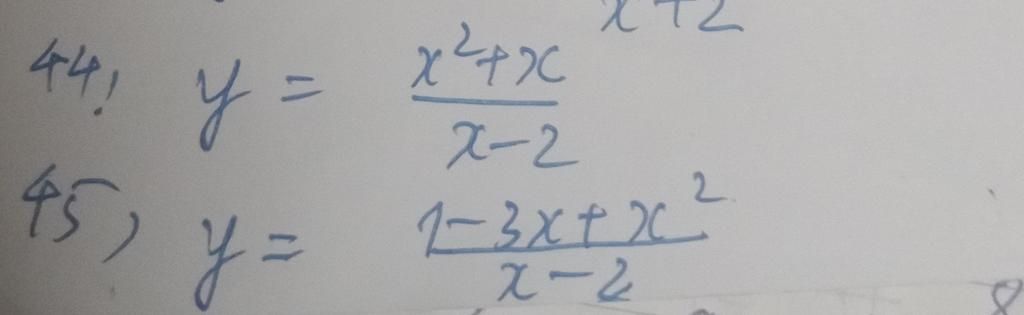 x+2
44! y = x²+x / x-2
45) y = 1-3x+x² / x-2
8